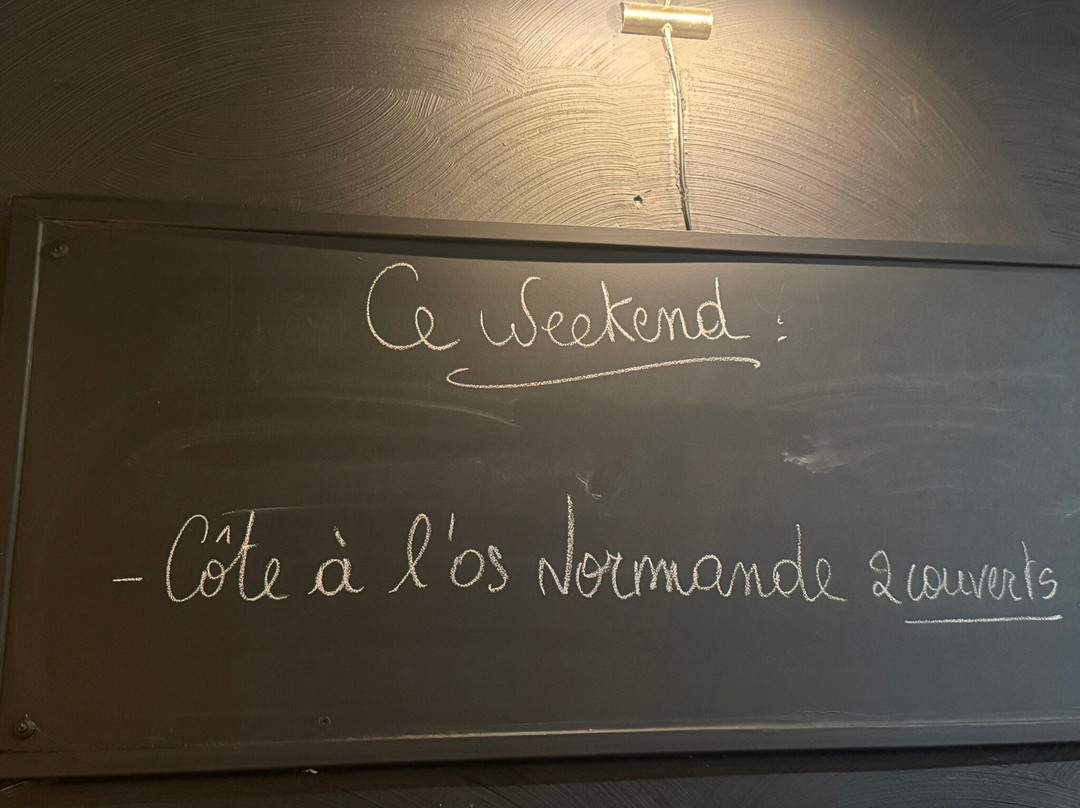 Ce Weekend :
- Côte à l'os Normande 2 couverts